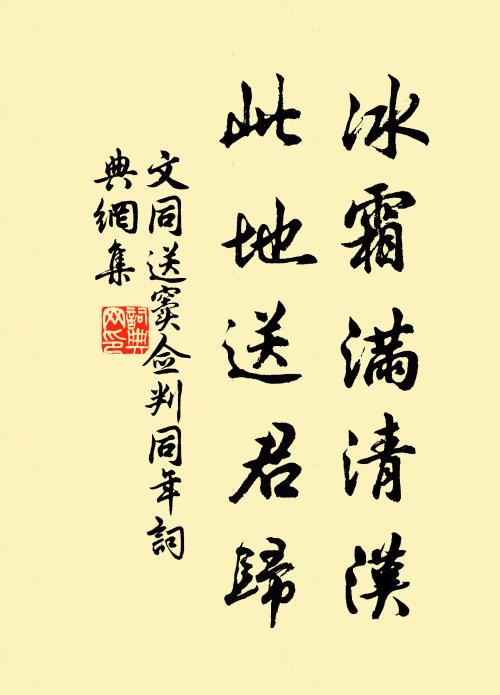 冰霜滿清漢
此地送君歸
文同送竇僉判同年詞
典網集
詞典
网印